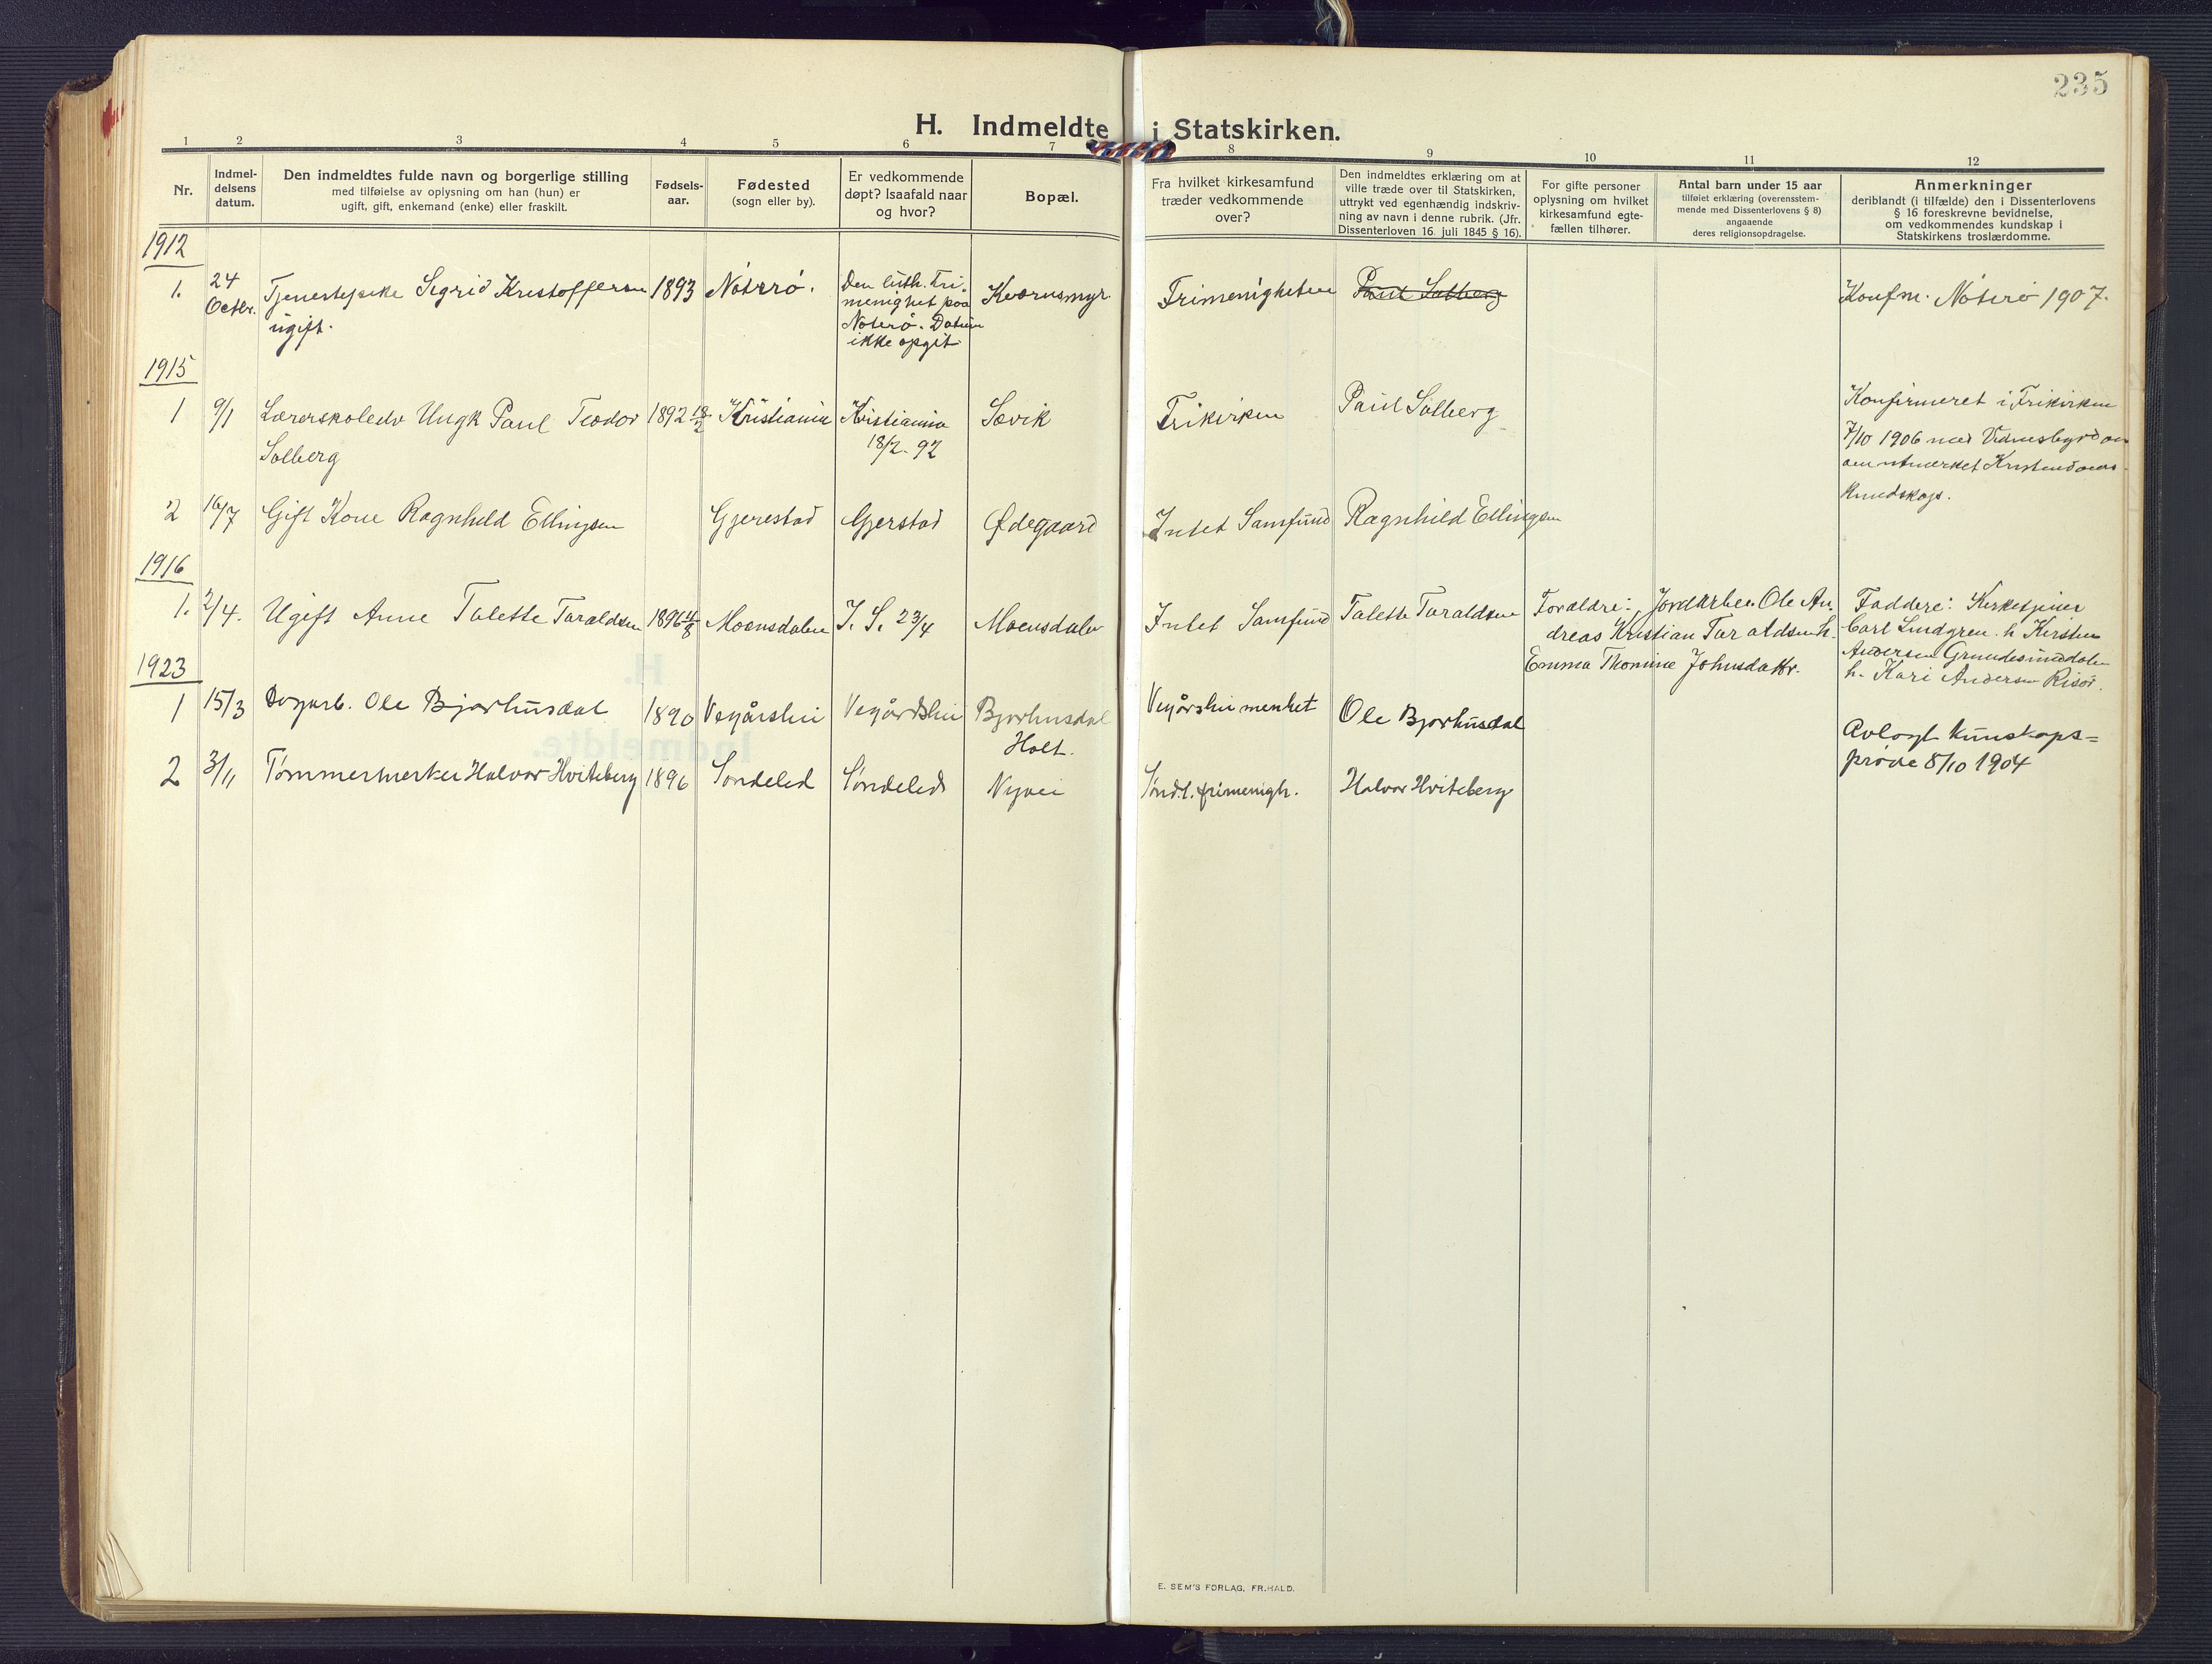 235
H. Indmeldte i Statskirken.
1 2 3 4 5 6 7 8 9 10 11 12
Nr.
Indmel-
delsens
datum.
Den indmeldtes fulde navn og borgerlige stilling
med tilføielse av oplysning om han (hun) er
ugift, gift, enkemand (enke) eller fraskilt.
Fødsels-
aar.
Fødested
(sogn eller by).
Er vedkommende
døpt? Isaafald naar
og hvor?
Bopæl.
Fra hvilket kirkesamfund
træder vedkommende
over?
Den indmeldtes erklæring om at
ville træde over til Statskirken,
uttrykt ved egenhændig indskriv-
ning av navn i denne rubrik. (Jfr.
Dissenterloven 16. juli 1845 § 16).
For gifte personer
oplysning om hvilket
kirkesamfund egte-
fællen tilhører.
Antal barn under 15 aar
tilføiet erklæring (overensstem-
mende med Dissenterlovens § 8)
angaaende
deres religionsopdragelse.
Anmerkninger
deriblandt (i tilfælde) den i Dissenterlovens
§ 16 foreskrevne bevidnelse,
om vedkommendes kundskap i
Statskirkens troslærdomme.
1912
1.
24
Octbr.
Tjenestepike Sigrid Kristoffersen
ugift.
1893
Nøterø.
Den luth. Fri-
menighet paa
Nøterø. Datum
ikke opgit
Kvernsmyr
Frimenigheten
Paul Solberg
Konfm. Nøterø 1907.
1915
1
9/1
Lærerskoleelv Ungk Paul Teodor
Solberg
1892 18/2
Kristiania
Kristiania
18/2. 92
Sævik
Frikirken
Paul Solberg
Konfirmeret i Frikirken
7/10 1906 med Vidnesbyrd om
utmerket Kristendoms-
kundskap.
2
16/7
Gift Kone Ragnhild Ellingsen
Gjerestad
Gjerstad
Ødegaard
Intet Samfund
Ragnhild Ellingsen
1916
1.
2/4.
Ugift Anne Talette Taraldsen
1896 4/8
Moensdalen
I. S. 23/4
Moensdalen
Intet Samfund
Talette Taraldsen
Forældre: Jordarbei. Ole An.
dreas Kristian Taraldsen h.
Emma Thomine Johnsdattr.
Faddere: Kirketjener
Carl Lindgren. h Kirsten
Andersen
h. Kari Andersen Risør.
1923
1
15/3
Dagarb. Ole Bjorhusdal
1890
Vegårshei
Vegårdshei
Bjorhusdal
Holt.
Vegårshei menhet
Ole Bjorhusdal
Avlagt kunskaps=
prøve 8/10 1904
2
3/11
Tømmermerker Halvor Hviteberg
1896
Søndeled
Søndeled
Nyvei
Sønd.l. frimenigh.
Halvor Hviteberg
E. SEM'S FORLAG, FR.HALD.